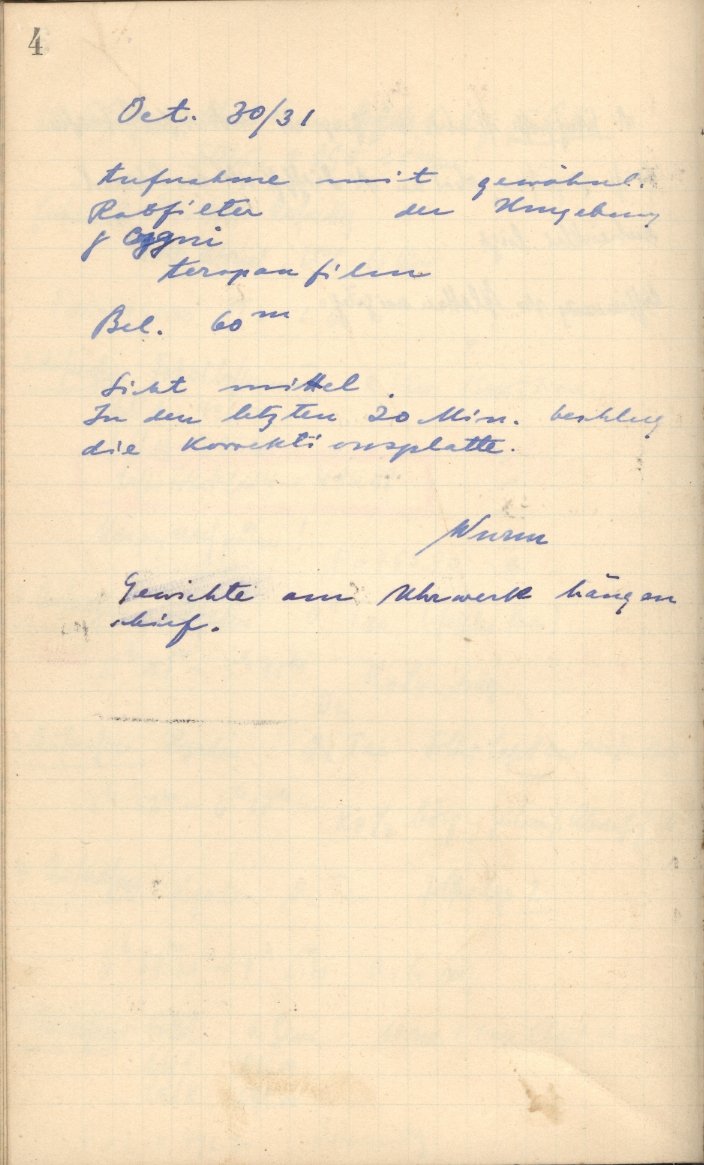 4
Oct. 30/31
Aufnahme mit gewöhnl.
Rotfilter der Umgebung
γ Cygni
Isropan film
Bel. 60ᵐ
Sicht mittel.
In den letzten 20 Min. beschlug
die Korrektionsplatte.
Wurm
Gewichte am Uhrwerk hängen
schief.